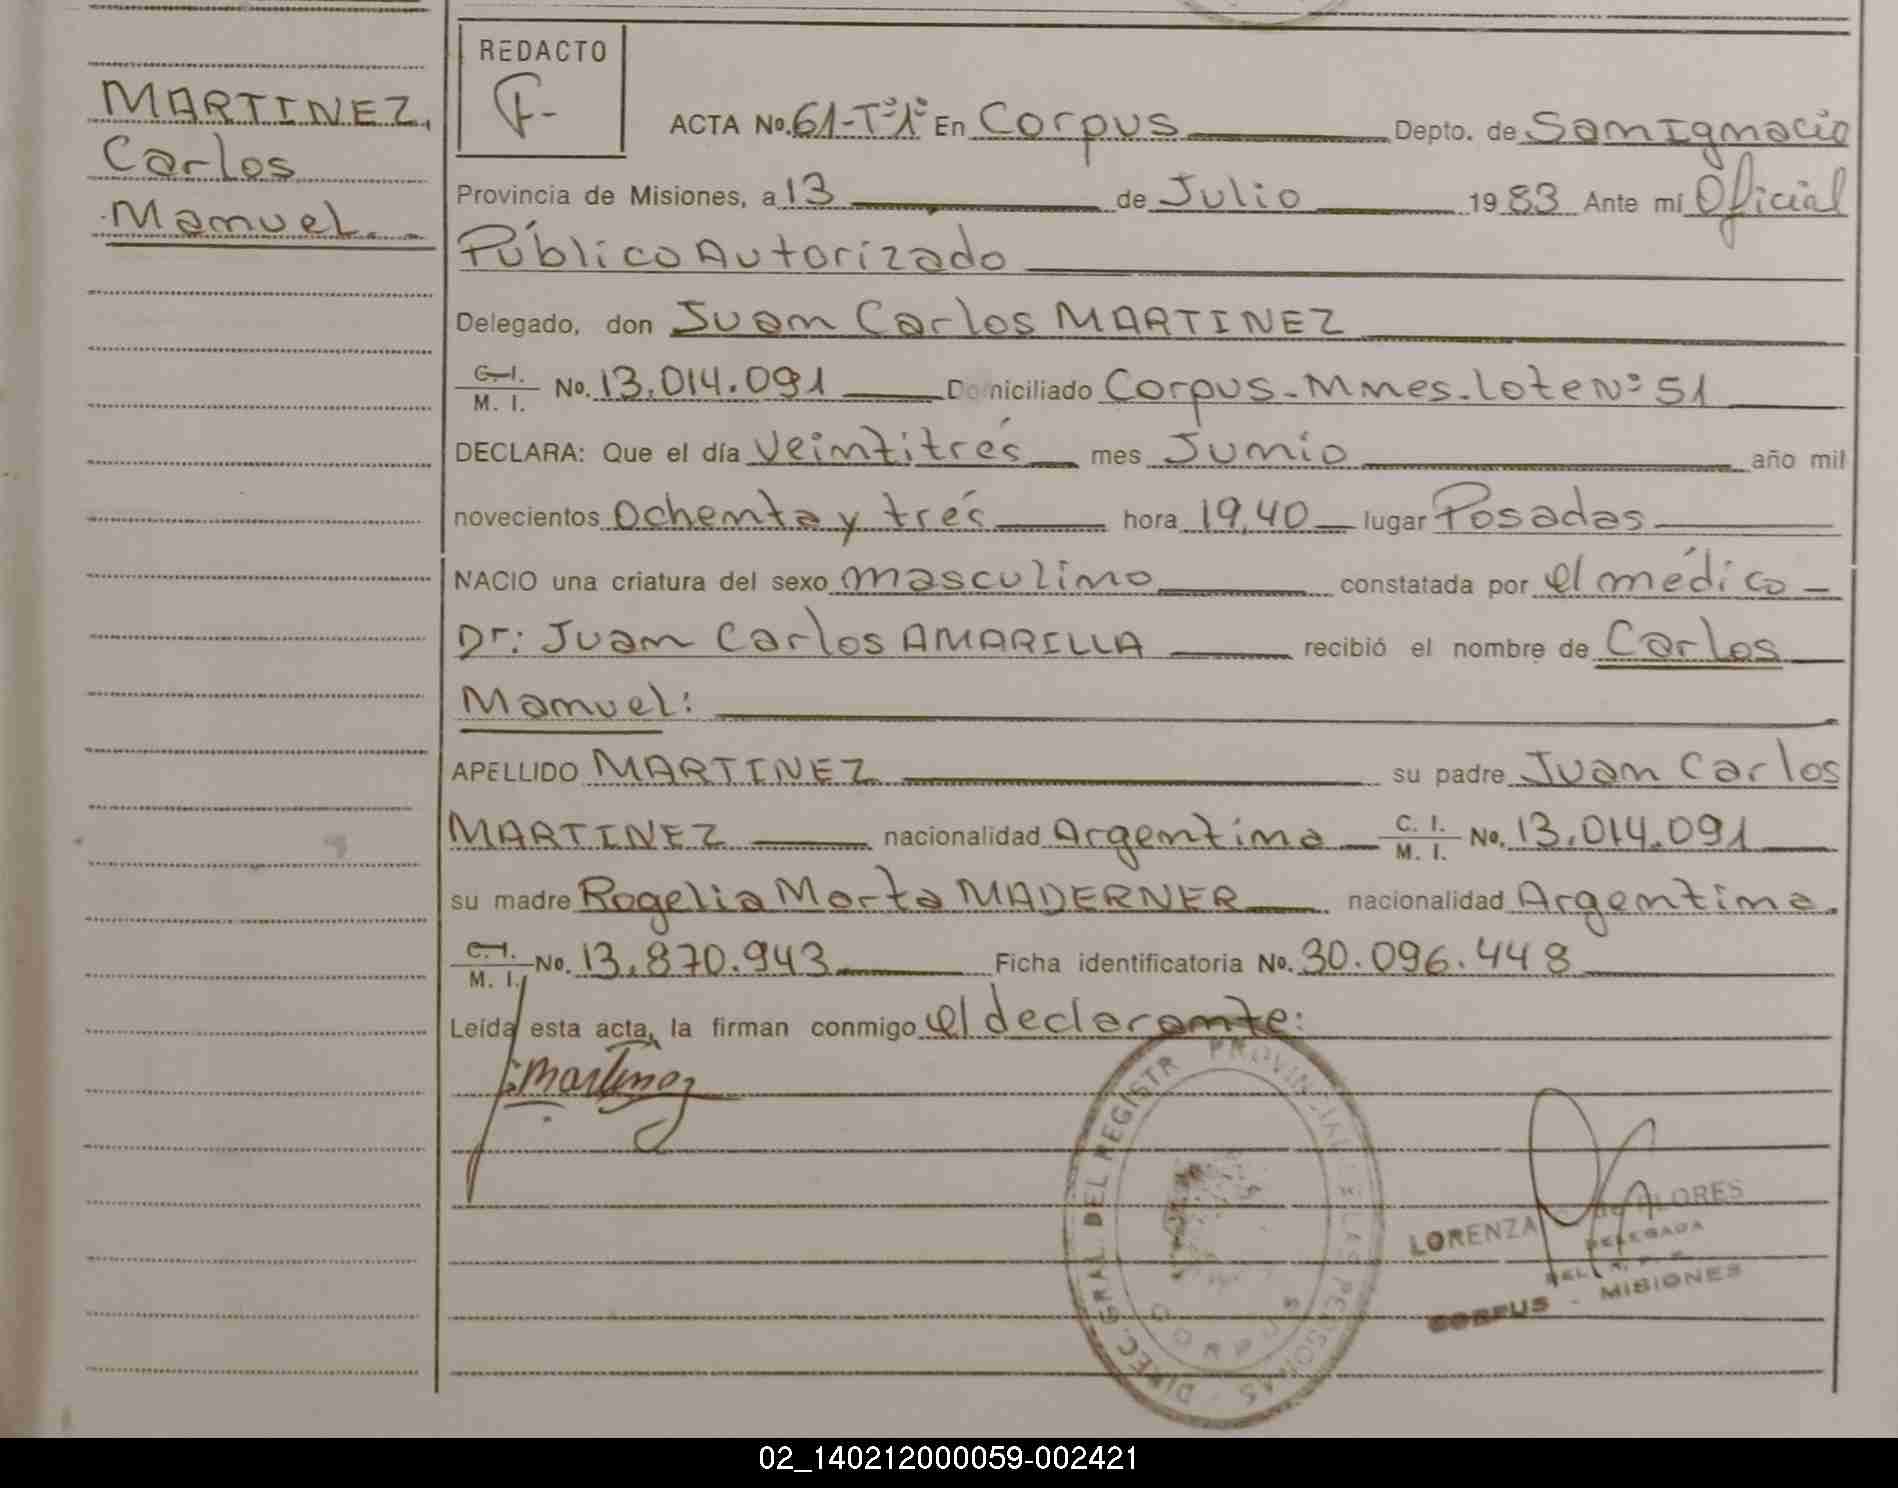 MARTINEZ,
Carlos
Manuel.
REDACTO
ACTA No. 61-Tº1º En Corpus Depto. de San Ignacio
Provincia de Misiones, a 13 de Julio 1983 Ante mí Oficial
Público Autorizado
Delegado, don Juan Carlos MARTINEZ
C.I. M.I. No. 13.014.091 Domiciliado Corpus-Mnes-lote Nº 51
DECLARA: Que el día Veintitrés mes Junio año mil
novecientos Ochenta y trés hora 19,40 lugar Posadas
NACIO una criatura del sexo masculino constatada por el médico
Dr: Juan Carlos AMARILLA recibió el nombre de Carlos
Manuel:
APELLIDO MARTINEZ su padre Juan Carlos
MARTINEZ nacionalidad Argentina C. I. M. I. No. 13.014.091
su madre Rogelia Marta MADERNER nacionalidad Argentina
C.I. M. I. No. 13.870.943 Ficha identificatoria No. 30.096.448
Leída esta acta, la firman conmigo el declarante:
Martinez
DIREC. GRAL. DEL REGISTR PROVINCIAL DE LAS PERSONAS
CORPUS
LORENZA de FLORES
DELEGADA
CORPUS - MISIONES
02_140212000059-002421